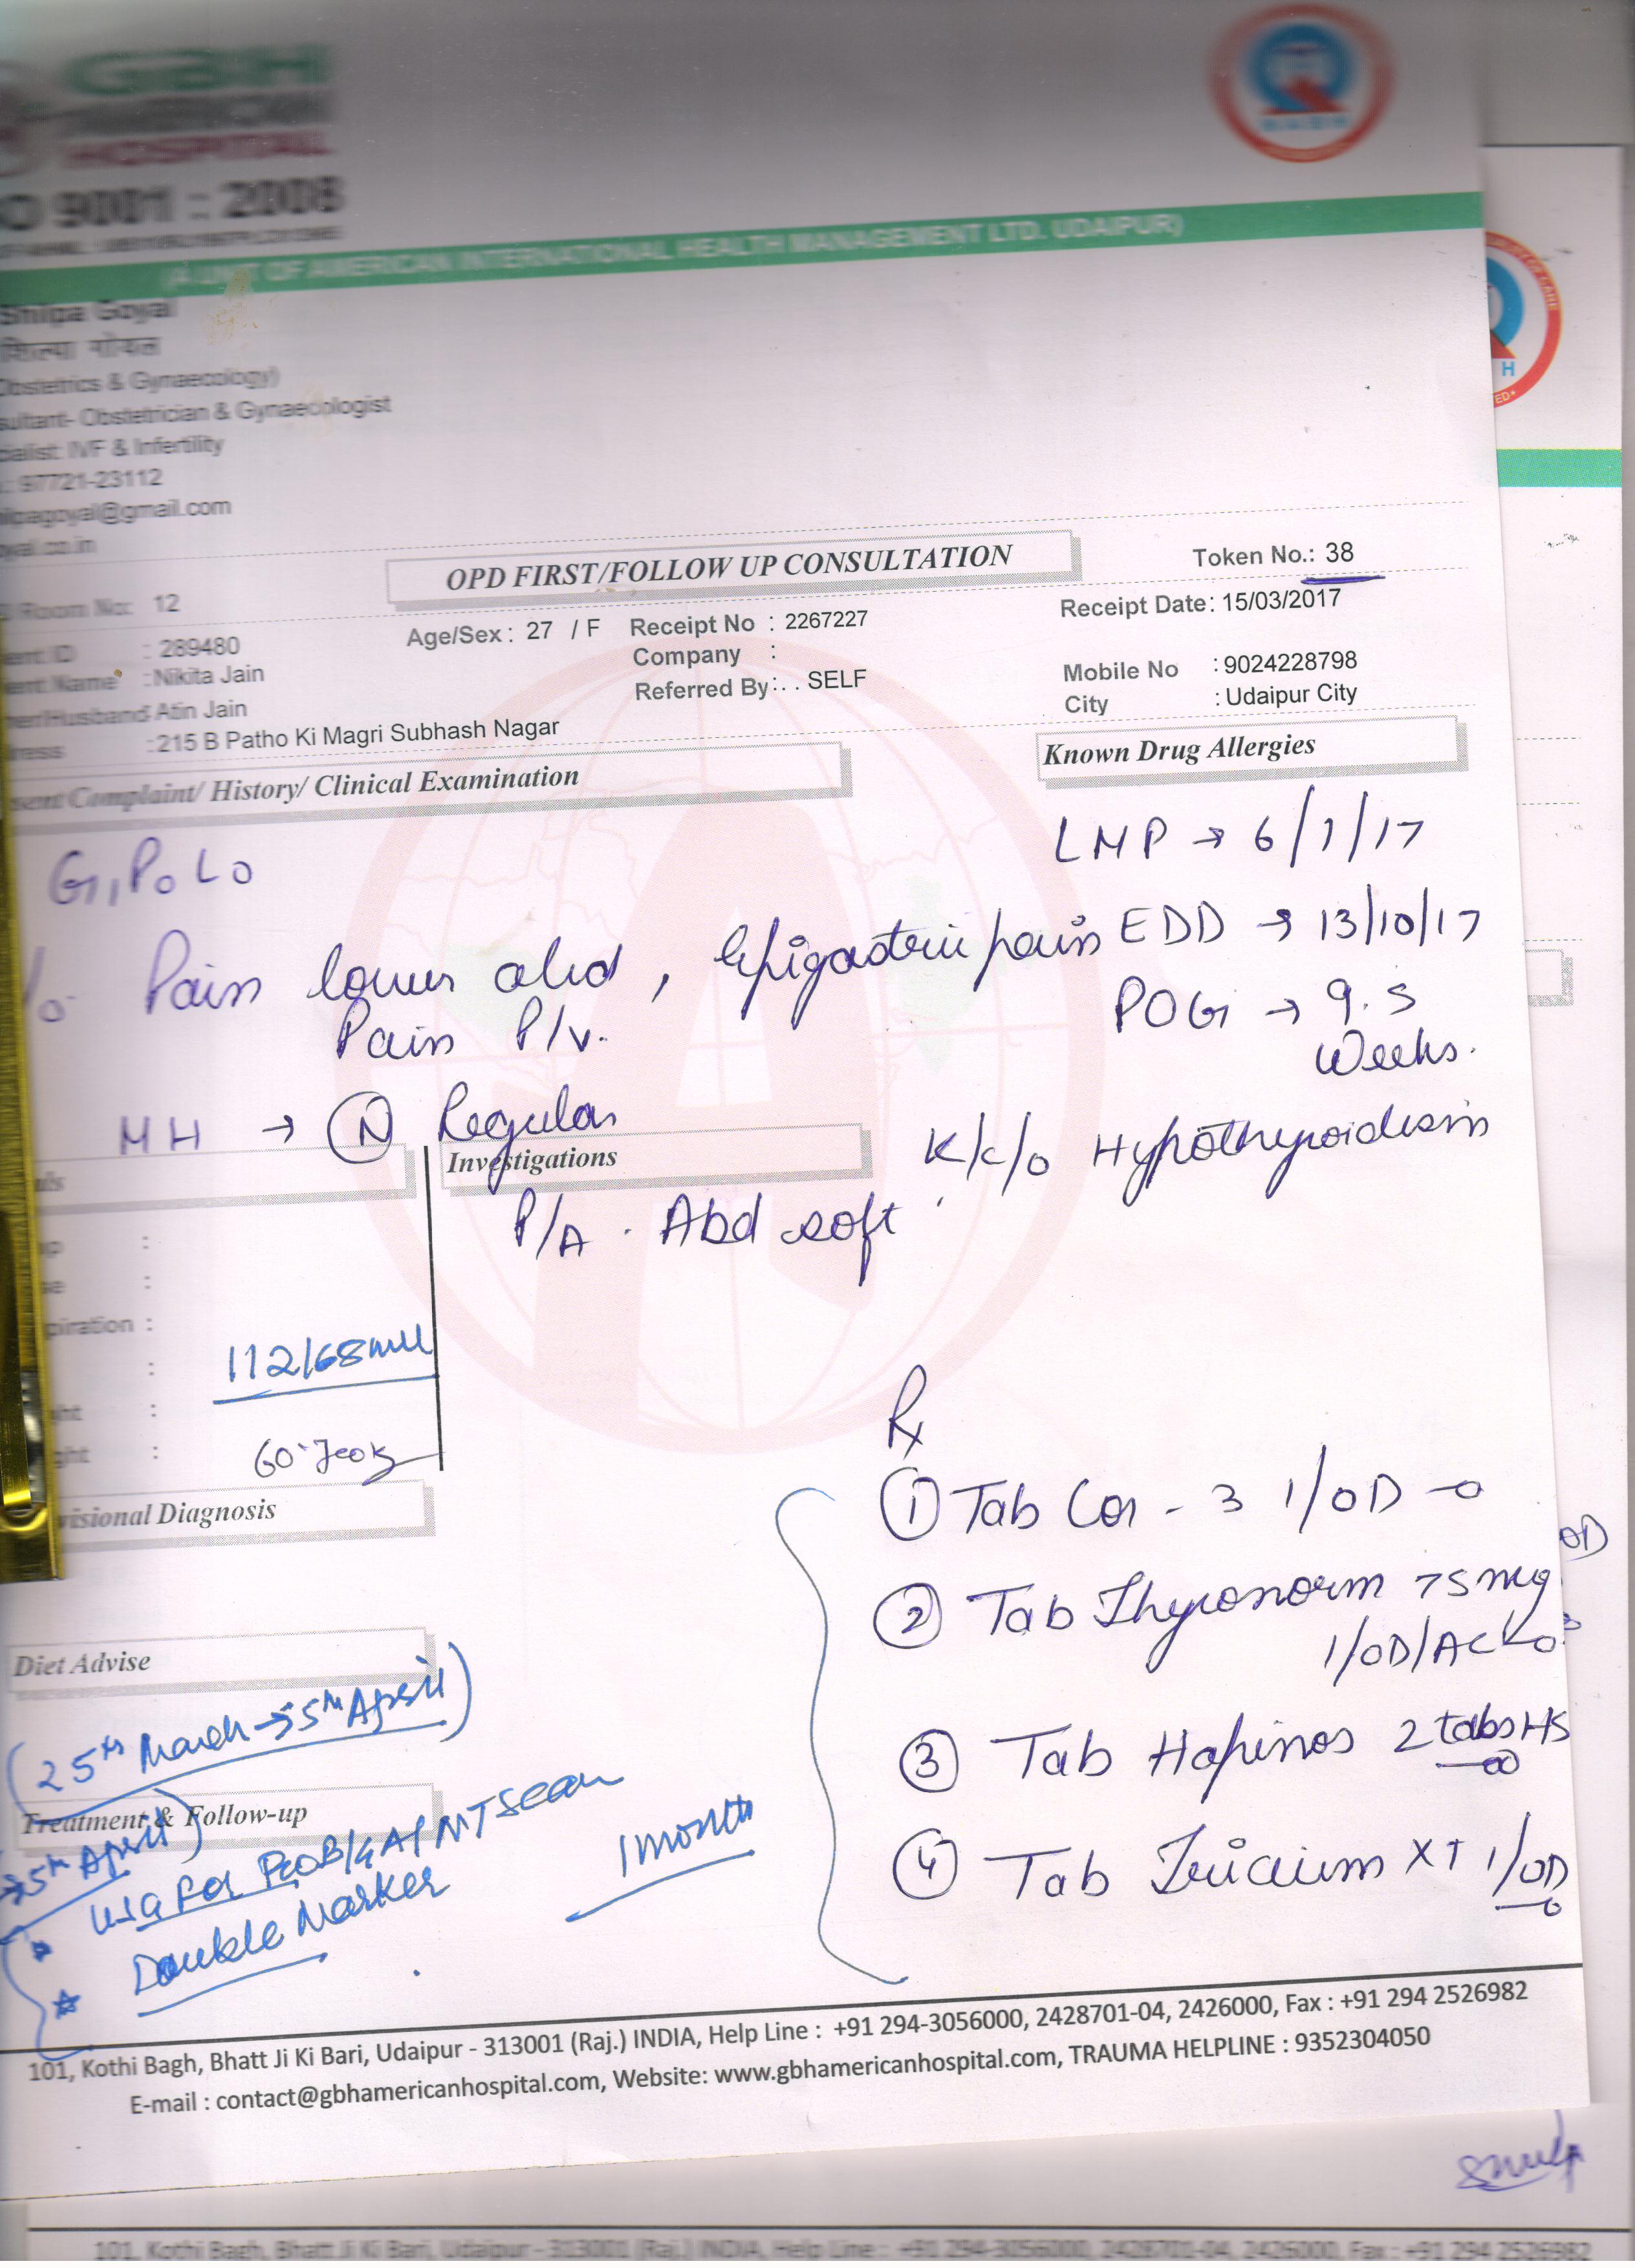 GBH
AMERICAN
HOSPITAL
O 9001 : 2008
(A UNIT OF AMERICAN INTERNATIONAL HEALTH MANAGEMENT LTD. UDAIPUR)
Shilpa Goyal
शिल्पा गोयल
Obstetrics & Gynaecology)
sultant- Obstetrician & Gynaecologist
cialist: IVF & Infertility
: 97721-23112
ilpagoyal@gmail.com
oyal.co.in
OPD FIRST/FOLLOW UP CONSULTATION
Token No.: 38
Room No: 12
Age/Sex : 27 / F
Receipt No : 2267227
Receipt Date : 15/03/2017
ent ID : 289480
Company :
ent Name : Nikita Jain
Referred By : . . SELF
Mobile No : 9024228798
er/Husband Atin Jain
City : Udaipur City
ress : 215 B Patho Ki Magri Subhash Nagar
sent Complaint/ History/ Clinical Examination
Known Drug Allergies
G1, P0 L0
LMP → 6/1/17
EDD → 13/10/17
/o Pain lower abd, Epigastric pain
Pain P/v.
POG → 9.5
Weeks.
MH → (N) Regular
K/c/o Hypothyroidism
Investigations
P/A . Abd soft
piration :
112/68
ght :
visional Diagnosis
Rx
① Tab Cor - 3 1/OD
② Tab Thyronorm 75 mcg
1/OD/AC
③ Tab Hapinos 2 tabs HS
④ Tab Tricium XT 1/OD
Diet Advise
(25th March → 5th April)
Treatment & Follow-up
→ 5th April)
USG for NT Scan
Double Marker
1 month
101, Kothi Bagh, Bhatt Ji Ki Bari, Udaipur - 313001 (Raj.) INDIA, Help Line : +91 294-3056000, 2428701-04, 2426000, Fax : +91 294 2526982
E-mail : contact@gbhamericanhospital.com, Website: www.gbhamericanhospital.com, TRAUMA HELPLINE : 9352304050
101, Kothi Bagh, Bhatt Ji Ki Bari, Udaipur - 313001 (Raj.) INDIA, Help Line : +91 294-3056000, 2428701-04, 2426000, Fax : +91 294 2526982